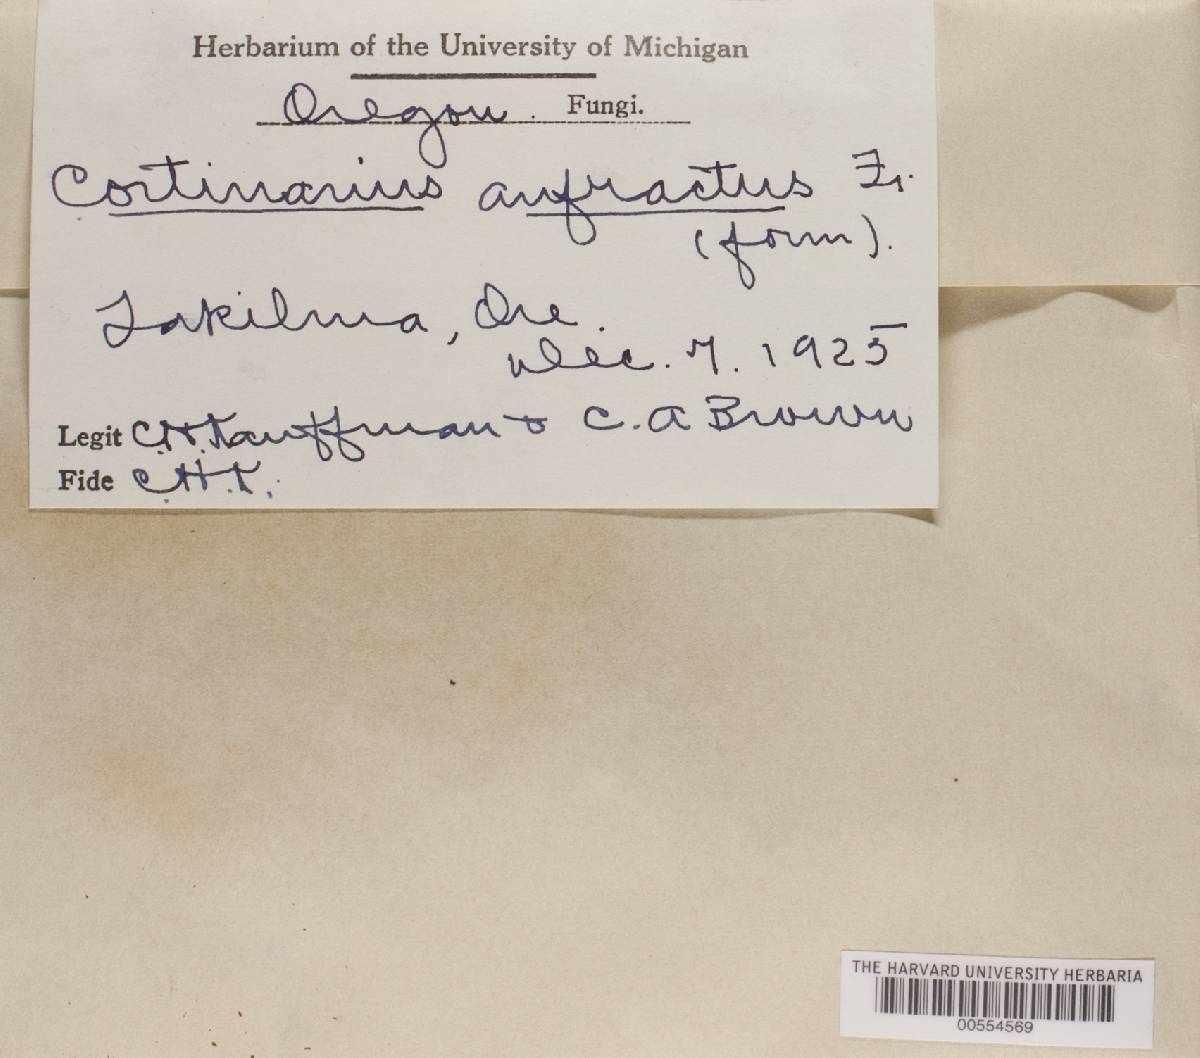 Herbarium of the University of Michigan
Oregon. Fungi.
Cortinarius anfractus Fr.
(form).
Takilma, Ore.
Dec. 7. 1925
Legit C.H. Kauffman & C. A Brown
Fide C.H.K.
THE HARVARD UNIVERSITY HERBARIA
00554569